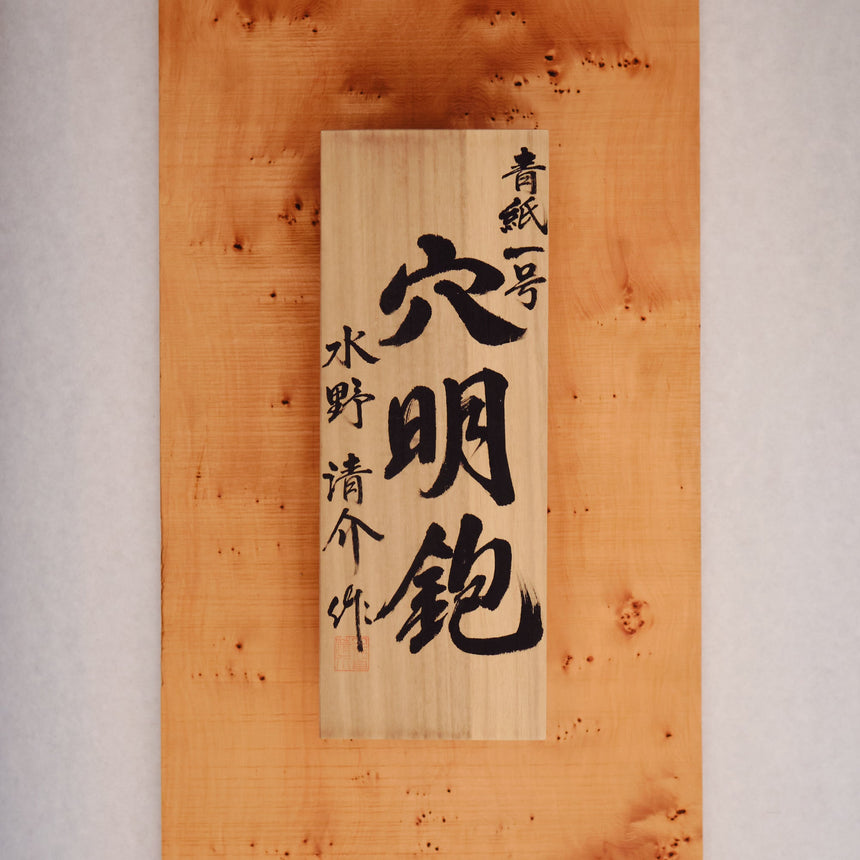 青紙一号
穴明鉋
水野清介作